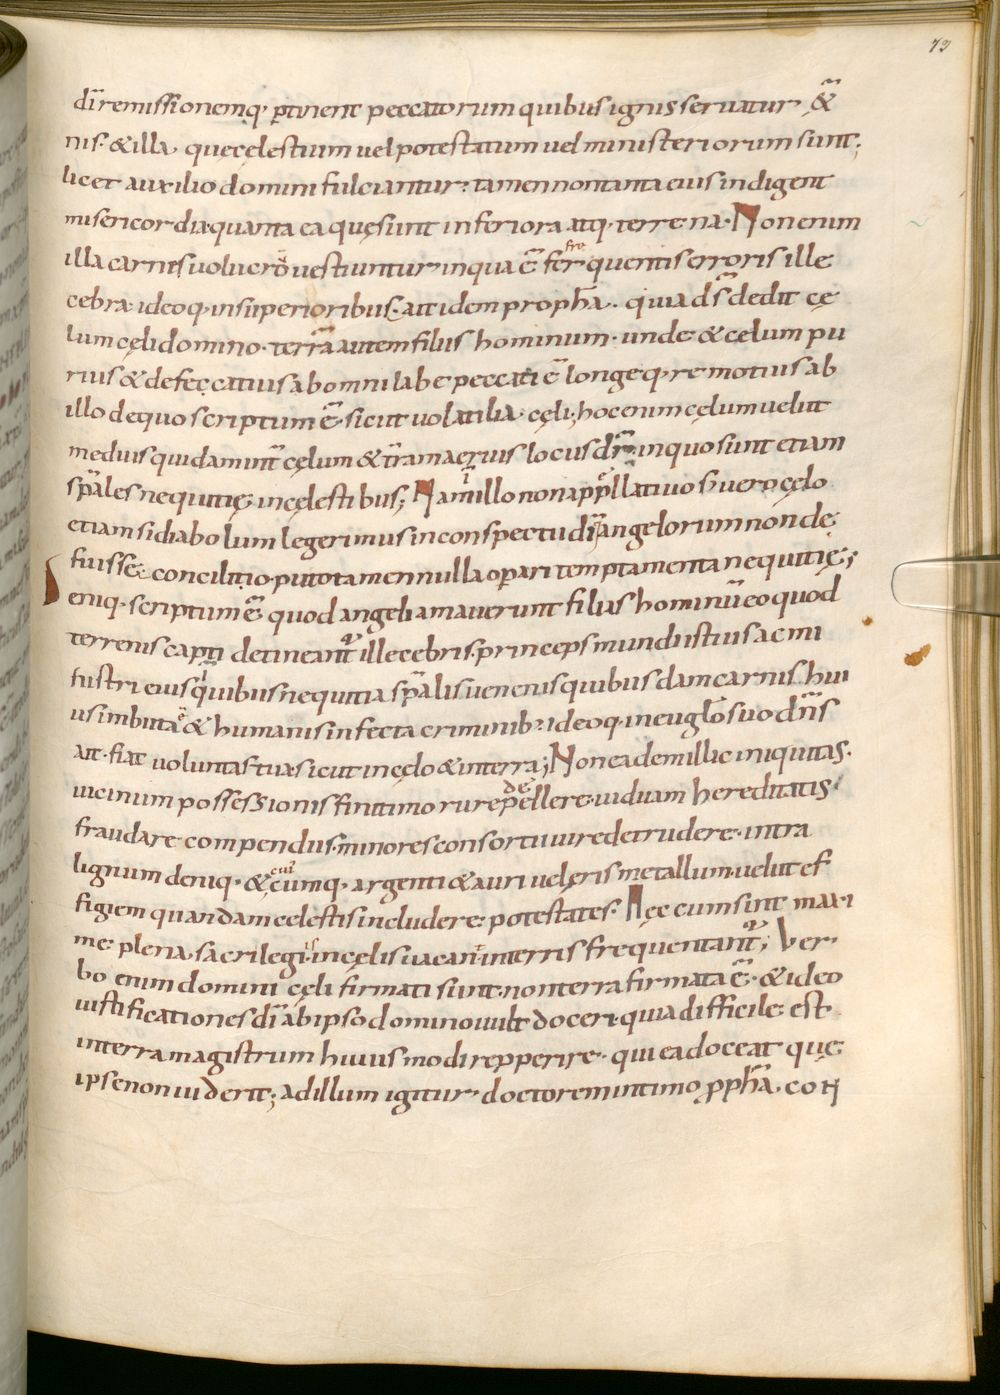 79
di̅ remissionemq· ptinent peccatorum quibus ignis seruatur &̅
nis· & illa· quę cęlestium uel potestatum uel ministeriorum sunt;
licet auxilio domini fulciantur· tamen non tanta eius indigent
misericordia· quanta ea quę sunt inferiora atq· terrena· Non enim
illa carnis uolucro uestiuntur in qua e̅ frequentis erroris ille
cebra· ideoq· in superioribus· ait idem proph̅a· quia d̅s dedit cę
lum cęli domino· terra̅ autem filiis hominum· unde & cęlum pu
rius & defęcatius ab omni labe peccati e̅ longeq· remotius ab
illo de quo scriptum e̅· sicut uolatilia cęli; hoc enim cęlum uelut
medius quidam int̅ cęlum & t̅ram aerius locus dr̅· in quo sunt etiam
sp̅ales nequitię in cęlestibus; Nam in illo non appellatiuo s; uero cęlo
etiam si diabolum legerimus in conspectu di̅ angelorum non de
fuisse concilitio· puto tamen nulla operari temptamenta nequitię;
Deniq· scriptum e̅ quod angeli amauerunt filias hominu̅ eo quod
terrenis capti detineant̅ illecebris· princeps mundi istius ac mi
nistri eius quibus nequitia sp̅alis uenenis quibusdam carnis hui
us imbuta e̅ & humanis infecta criminib; ideoq· in euglo̅ suo dn̅s
ait· fiat uoluntas tua sicut in cęlo & in terra; Non eadem illic iniquitas·
uicinum possessionis finitimo rure depellere· uiduam hereditatis
fraudare compendiis· minores consortii uire detrudere· intra
lignum deniq· & cuiumq· argenti & auri ueleris metallum· uelut ef
figiem quandam cęlestis includere potestates· Hęc cum sint maxi
me plena sacrilegiis in cęlis uacant· in terris frequentant̅; Ver
bo enim domini cęli firmati sunt· non terra firmata e̅· & ideo
iustificationes di̅ ab ipso domino uult doceri· quia difficile est
in terra magistrum huiusmodi repperire· qui ea doceat quę
ipse non uiderit; ad illum igitur doctorem intimo pph̅a con